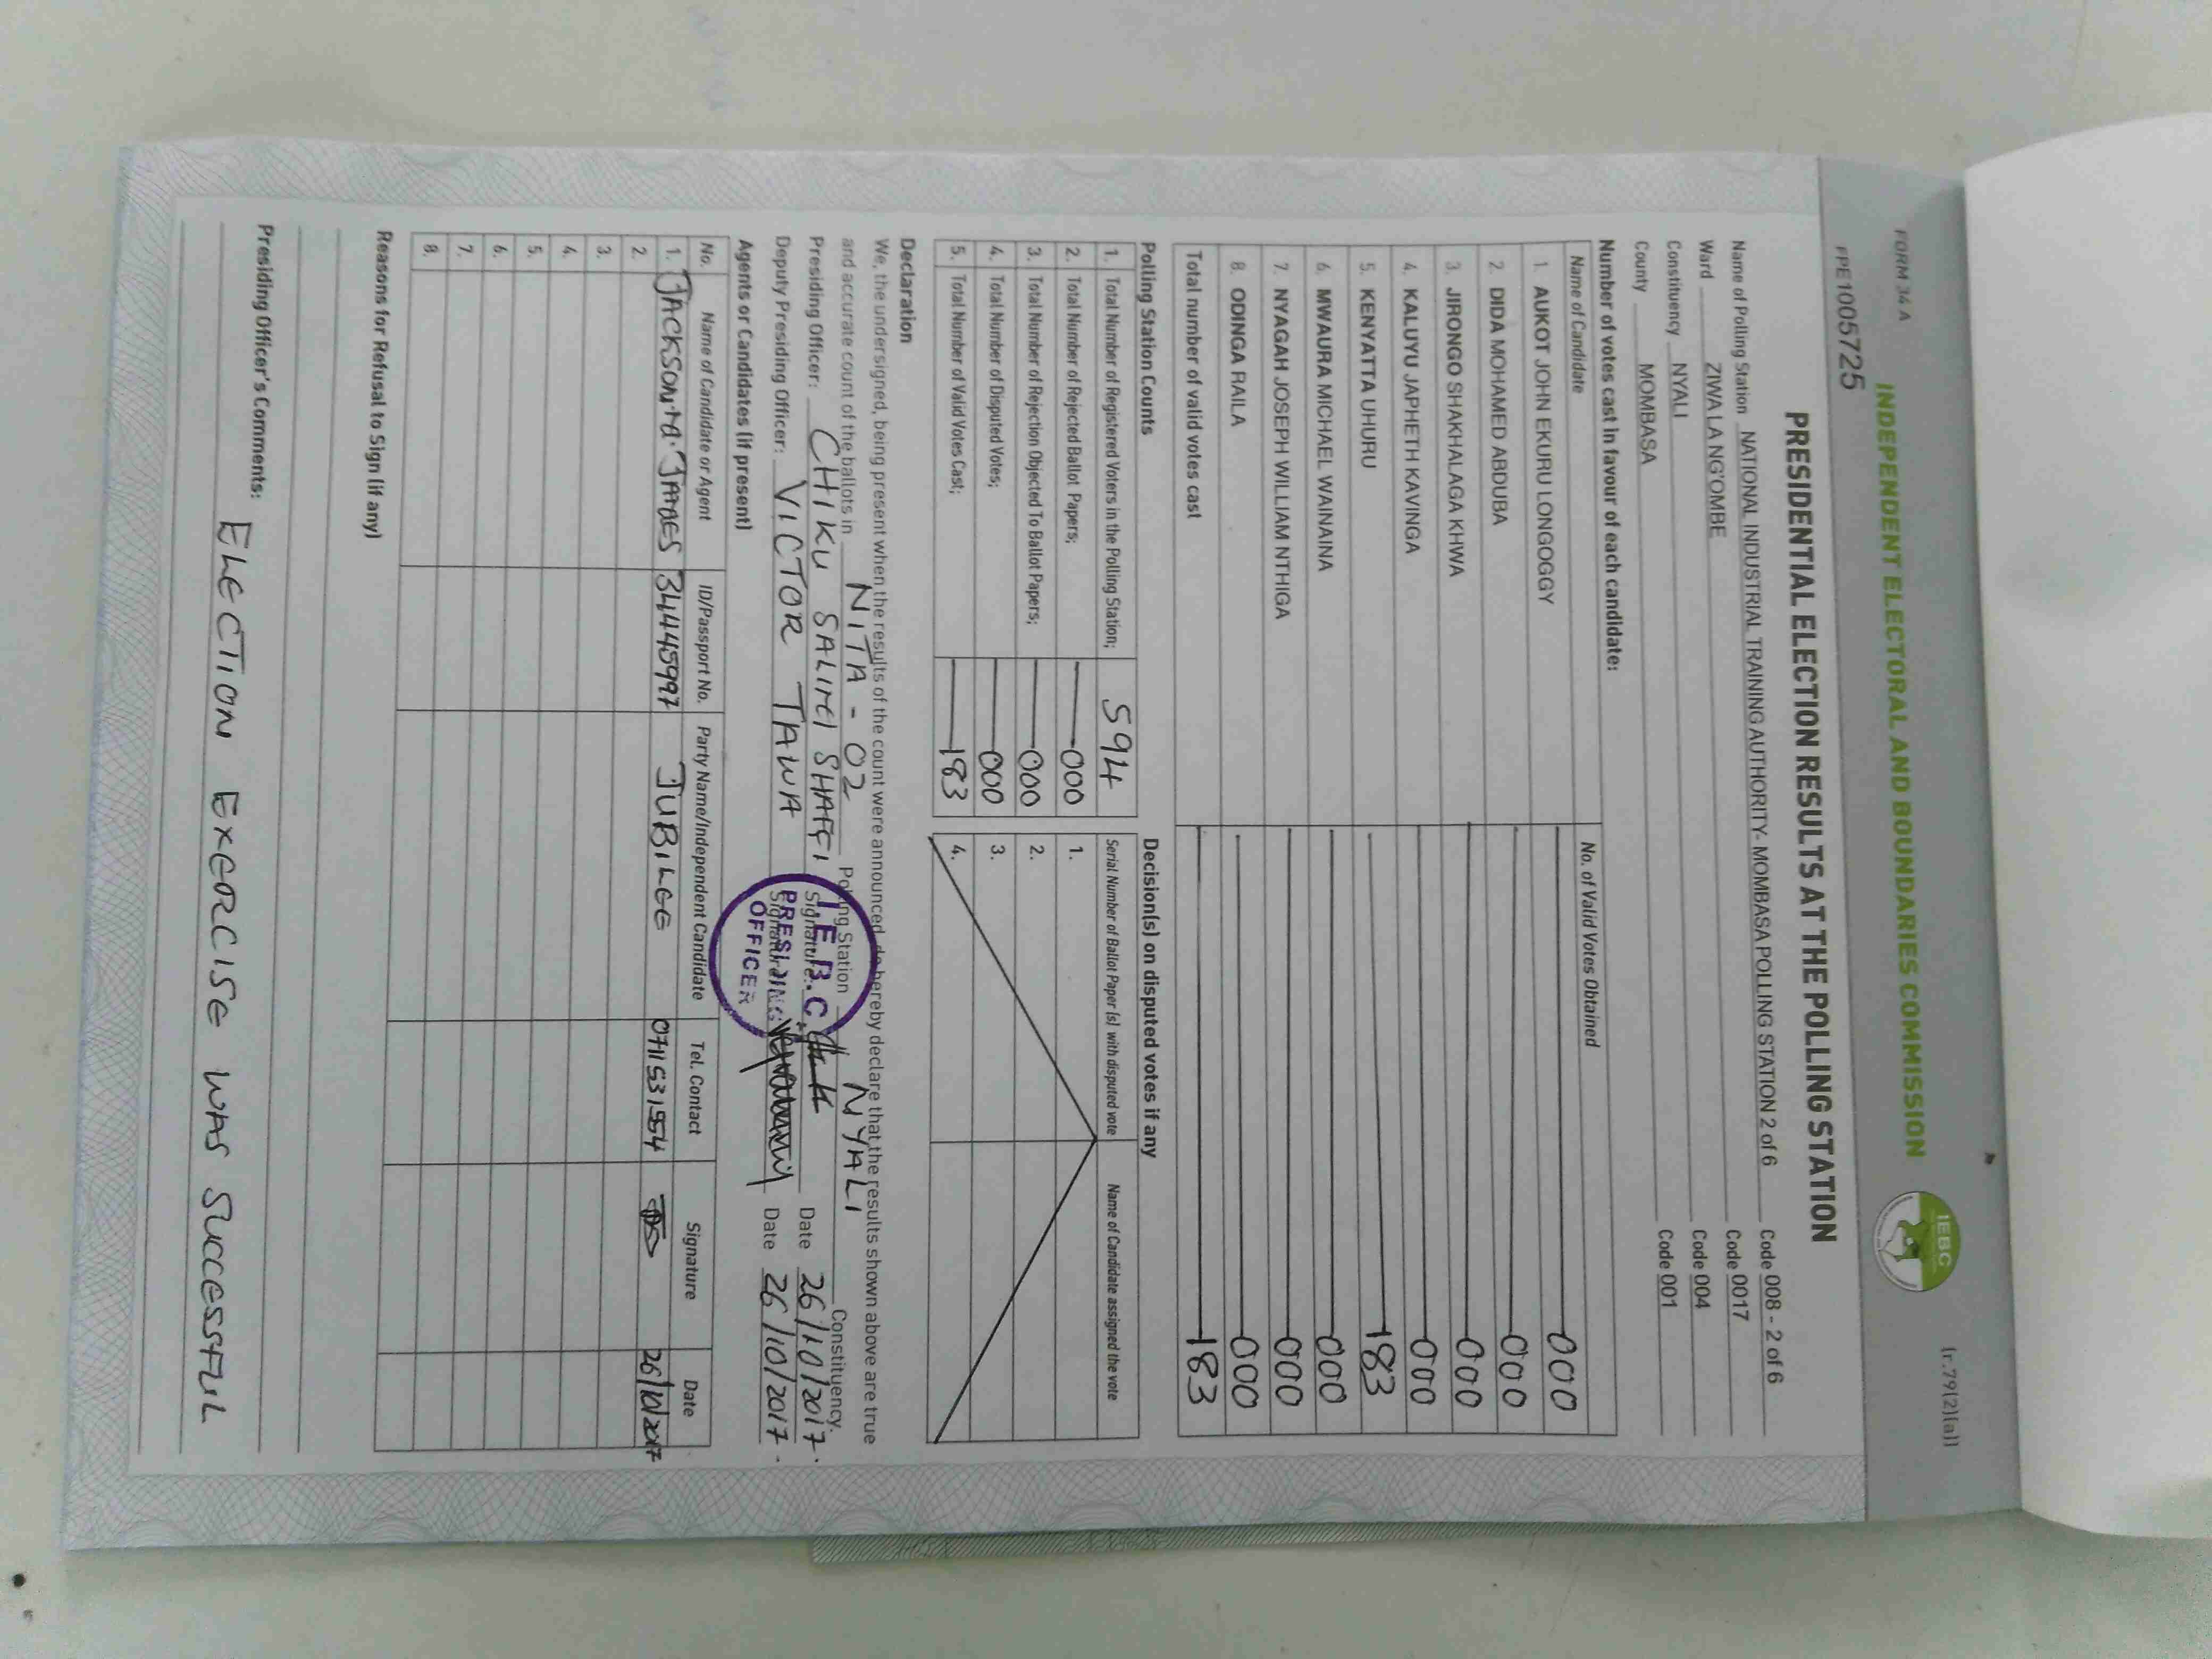 FORM 34 A
(r.79(2)(a))
INDEPENDENT ELECTORAL AND BOUNDARIES COMMISSION
IEBC
PRE1005725
PRESIDENTIAL ELECTION RESULTS AT THE POLLING STATION
Name of Polling Station NATIONAL INDUSTRIAL TRAINING AUTHORITY- MOMBASA POLLING STATION 2 of 6 Code 008 - 2 of 6
Ward ZIWA LA NG'OMBE Code 0017
Constituency NYALI Code 004
County MOMBASA Code 001
Number of votes cast in favour of each candidate:
Name of Candidate No. of Valid Votes Obtained
1. AUKOT JOHN EKURU LONGOGGY 000
2. DIDA MOHAMED ABDUBA 000
3. JIRONGO SHAKHALAGA KHWA 000
4. KALUYU JAPHETH KAVINGA 000
5. KENYATTA UHURU 183
6. MWAURA MICHAEL WAINAINA 000
7. NYAGAH JOSEPH WILLIAM NTHIGA 000
8. ODINGA RAILA 000
Total number of valid votes cast 183
Polling Station Counts
1. Total Number of Registered Voters in the Polling Station; 594
2. Total Number of Rejected Ballot Papers; 000
3. Total Number of Rejection Objected To Ballot Papers; 000
4. Total Number of Disputed Votes; 000
5. Total Number of Valid Votes Cast; 183
Decision(s) on disputed votes if any
Serial Number of Ballot Paper (s) with disputed vote Name of Candidate assigned the vote
1.
2.
3.
4.
Declaration
We, the undersigned, being present when the results of the count were announced, do hereby declare that the results shown above are true
and accurate count of the ballots in NITA - 02 Polling Station NYALI Constituency.
Presiding Officer: CHIKU SALIM SHAFFI Signature: Date 26/10/2017.
Deputy Presiding Officer: VICTOR TAWA Signature Date 26/10/2017.
I.E.B.C
PRESIDING
OFFICER
Agents or Candidates (if present)
No. Name of Candidate or Agent ID/Passport No. Party Name/Independent Candidate Tel. Contact Signature Date
1. JACKSON M. JAMES 34445997 JUBILEE 0711531554 26/10/2017
2.
3.
4.
5.
6.
7.
8.
Reasons for Refusal to Sign (if any)
Presiding Officer's Comments: ELECTION EXCERCISE WAS SUCCESSFUL